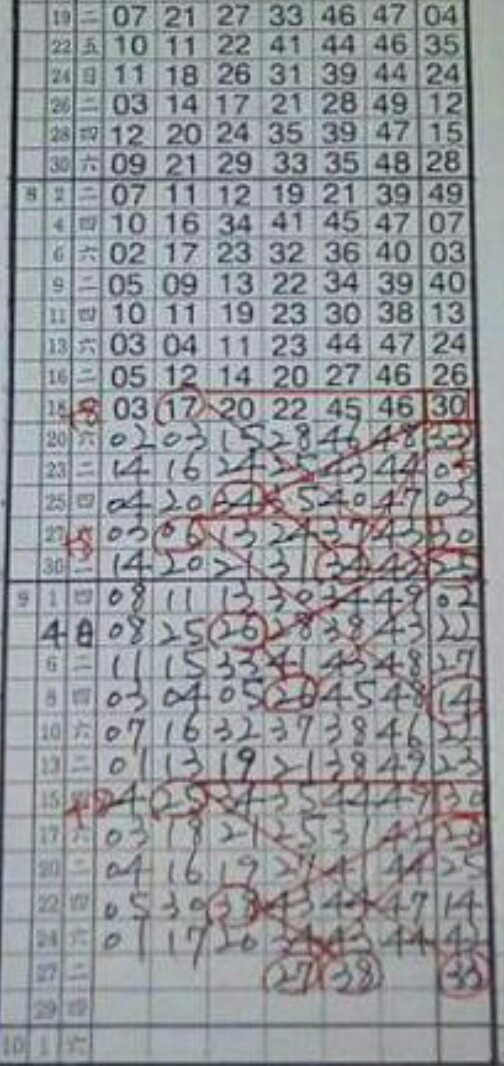 19 二 07 21 27 33 46 47 04
22 五 10 11 22 41 44 46 35
24 日 11 18 26 31 39 44 24
26 二 03 14 17 21 28 49 12
28 四 12 20 24 35 39 47 15
30 六 09 21 29 33 35 48 28
8 2 二 07 11 12 19 21 39 49
4 四 10 16 34 41 45 47 07
6 六 02 17 23 32 36 40 03
9 二 05 09 13 22 34 39 40
11 四 10 11 19 23 30 38 13
13 六 03 04 11 23 44 47 24
16 二 05 12 14 20 27 46 26
18 03 17 20 22 45 46 30
20 六 02 03 15 28 46 48
23 二 14 16 24 25 43 44
25 四 04 20 34 40 47 03
27 03 06 13 24 37 43 30
30 二 14 20 21 31 34 25
9 1 四 08 11 13 30 49 02
4 日 08 25 26 28 38 43 22
6 二 11 15 33 41 43 48 27
8 四 03 04 05 26 45 48 14
10 六 07 16 32 37 38 46
13 二 01 13 19 21 38 49 23
15 25 34 35 44 49 30
17 六 03 18 21 25 31
20 二 04 16 19 27 41 44 25
22 四 05 30 38 43 44 47 14
24 六 01 17 20 34 43 44
27 二 27 38 33
29 四
10 1 六